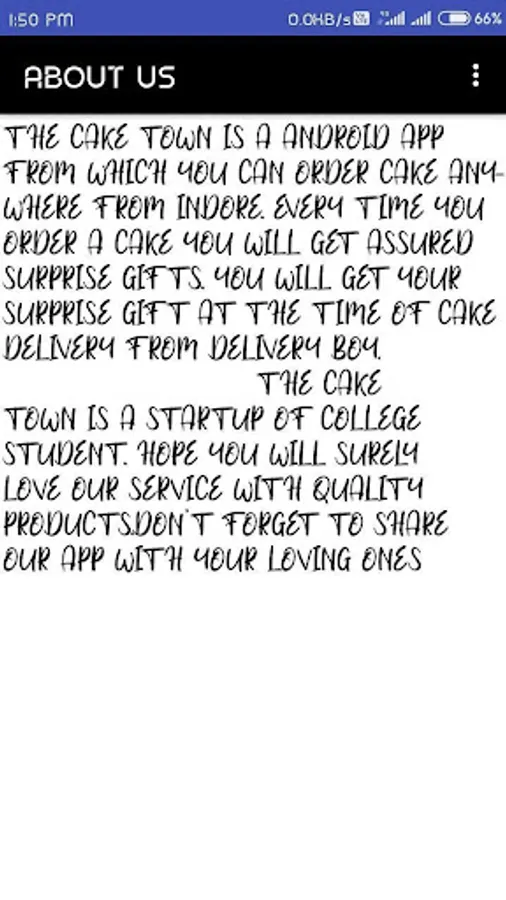 1:50 PM 0.0KB/s 66%
ABOUT US
THE CAKE TOWN IS A ANDROID APP
FROM WHICH YOU CAN ORDER CAKE ANY-
WHERE FROM INDORE. EVERY TIME YOU
ORDER A CAKE YOU WILL GET ASSURED
SURPRISE GIFTS. YOU WILL GET YOUR
SURPRISE GIFT AT THE TIME OF CAKE
DELIVERY FROM DELIVERY BOY.
THE CAKE
TOWN IS A STARTUP OF COLLEGE
STUDENT. HOPE YOU WILL SURELY
LOVE OUR SERVICE WITH QUALITY
PRODUCTS.DON'T FORGET TO SHARE
OUR APP WITH YOUR LOVING ONES